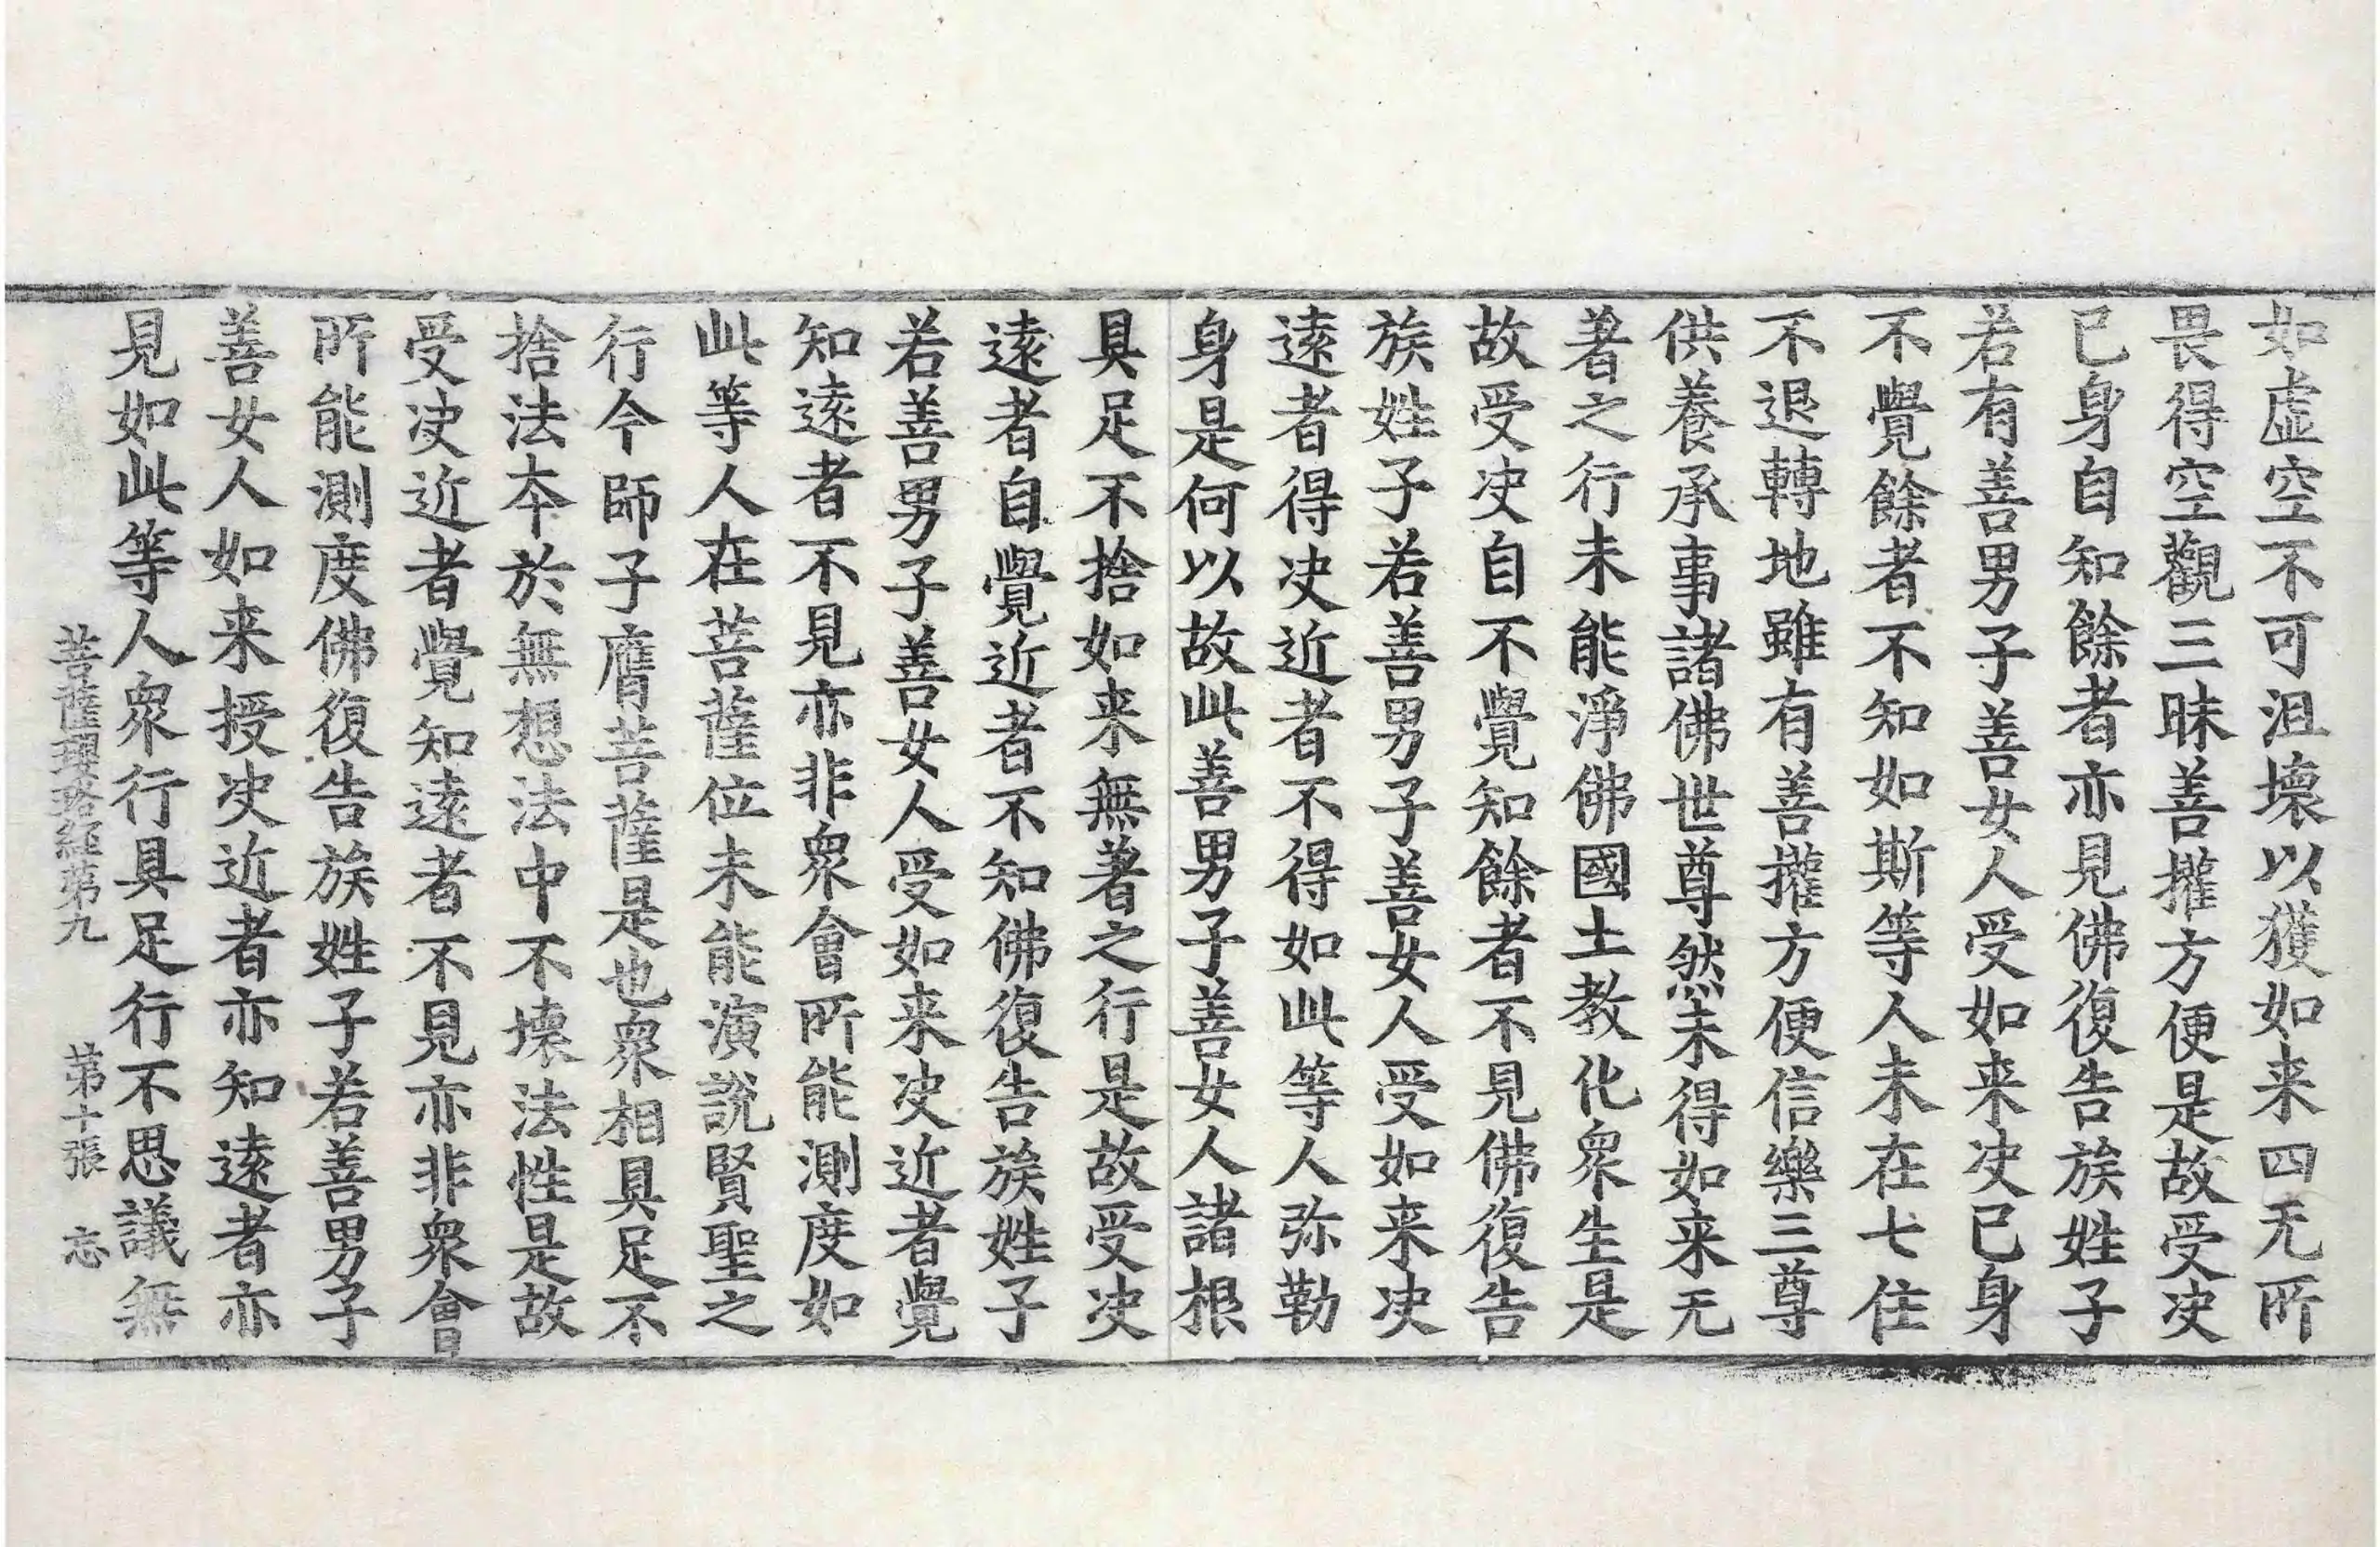 如虛空不可沮壞以獲如来四无所
畏得空觀三昧善攉方便是故受决
已身自知餘者亦見佛復告族姓子
若有善男子善女人受如来决已身
不覺餘者不知如斯等人未在七住
不退轉地雖有善攉方便信樂三尊
供養承事諸佛世尊然未得如来无
著之行未能淨佛國土教化衆生是
故受决自不覺知餘者不見佛復告
族姓子若善男子善女人受如来决
遠者得决近者不得如此等人弥勒
身是何以故此善男子善女人諸根
具足不捨如来無著之行是故受决
遠者自覺近者不知佛復告族姓子
若善男子善女人受如来决近者覺
知遠者不見亦非衆會所能測度如
此等人在菩薩位未能演說賢聖之
行今師子膺菩薩是也衆相具足不
捨法本於無想法中不壞法性是故
受决近者覺知遠者不見亦非衆會
所能測度佛復告族姓子若善男子
善女人如来授决近者亦知遠者亦
見如此等人衆行具足行不思議無
菩薩瓔珞經第九 第十張 忘